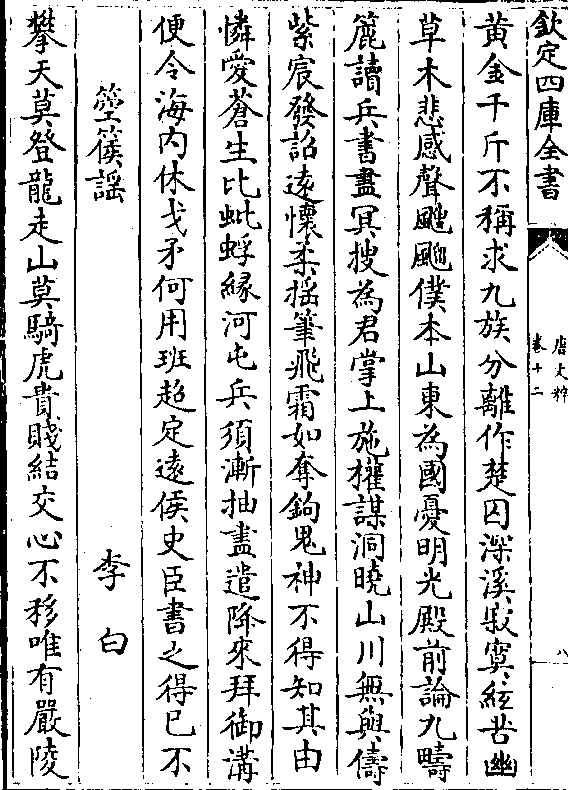 欽定四庫全書
唐文粹
卷十二
八
黄金千斤不稱求九族分離作楚囚深溪寂寞絃苦幽
草木悲感聲颼飀僕本山東為國憂明光殿前論九疇
簏讀兵書盡冥搜為君掌上施權謀洞曉山川無與儔
紫宸發詔逺懷柔揺筆飛霜如奪鉤鬼神不得知其由
憐愛蒼生比蚍蜉縁河屯兵須漸抽盡遣降來拜御溝
便令海内休戈矛何用班超定逺侯史臣書之得已不
箜篌謡 李白
攀天莫登龍走山莫騎虎貴賤結交心不移唯有嚴陵